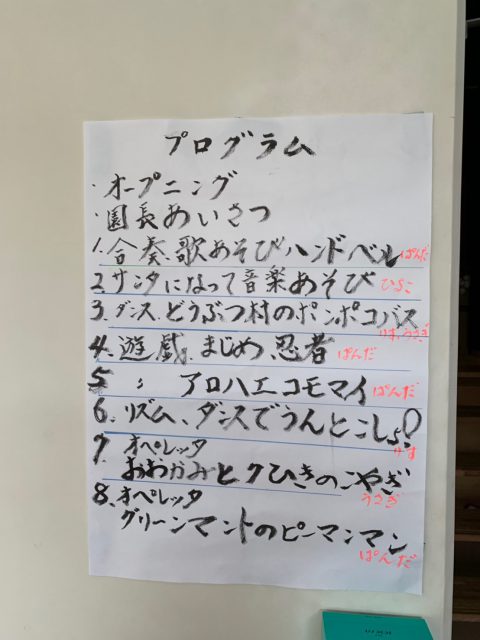 プログラム
・オープニング
・園長あいさつ
1. 合奏、歌あそびハンドベル ぱんだ
2. サンタになって音楽あそび ひよこ
3. ダンス、どうぶつ村のポンポコバス りす、うさぎ
4. 遊戯、まじめ忍者 ぱんだ
5 : アロハエコモマイ ぱんだ
6. リズム、ダンスでうんとこしょ! りす
7 オペレッタ
おおかみと7ひきのこやぎ うさぎ
8、オペレッタ
グリーンマントのピーマンマン ぱんだ